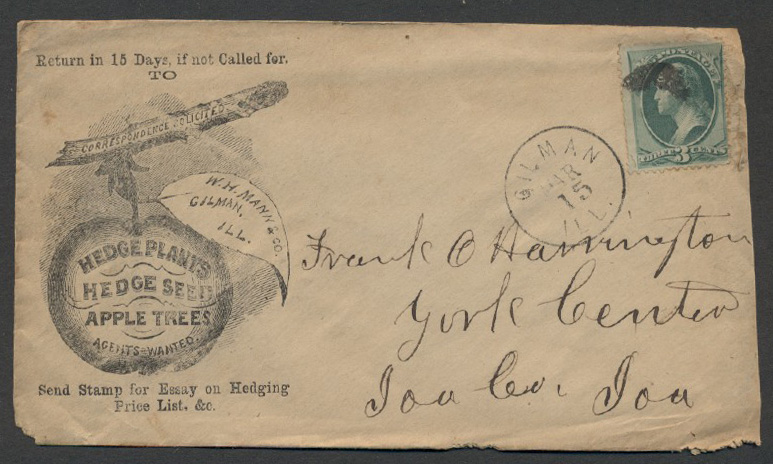 Return in 15 Days, if not Called for.
TO
CORRESPONDENCE SOLICITED
W. H. MANN & CO.
GILMAN,
ILL.
HEDGE PLANTS
HEDGE SEED
APPLE TREES
AGENTS WANTED.
Send Stamp for Essay on Hedging
Price List, &c.
U.S. POSTAGE
THREE 3 CENTS
GILMAN
MAR
15
ILL.
Frank O Harrington
York Center
Ioa Co. Ioa